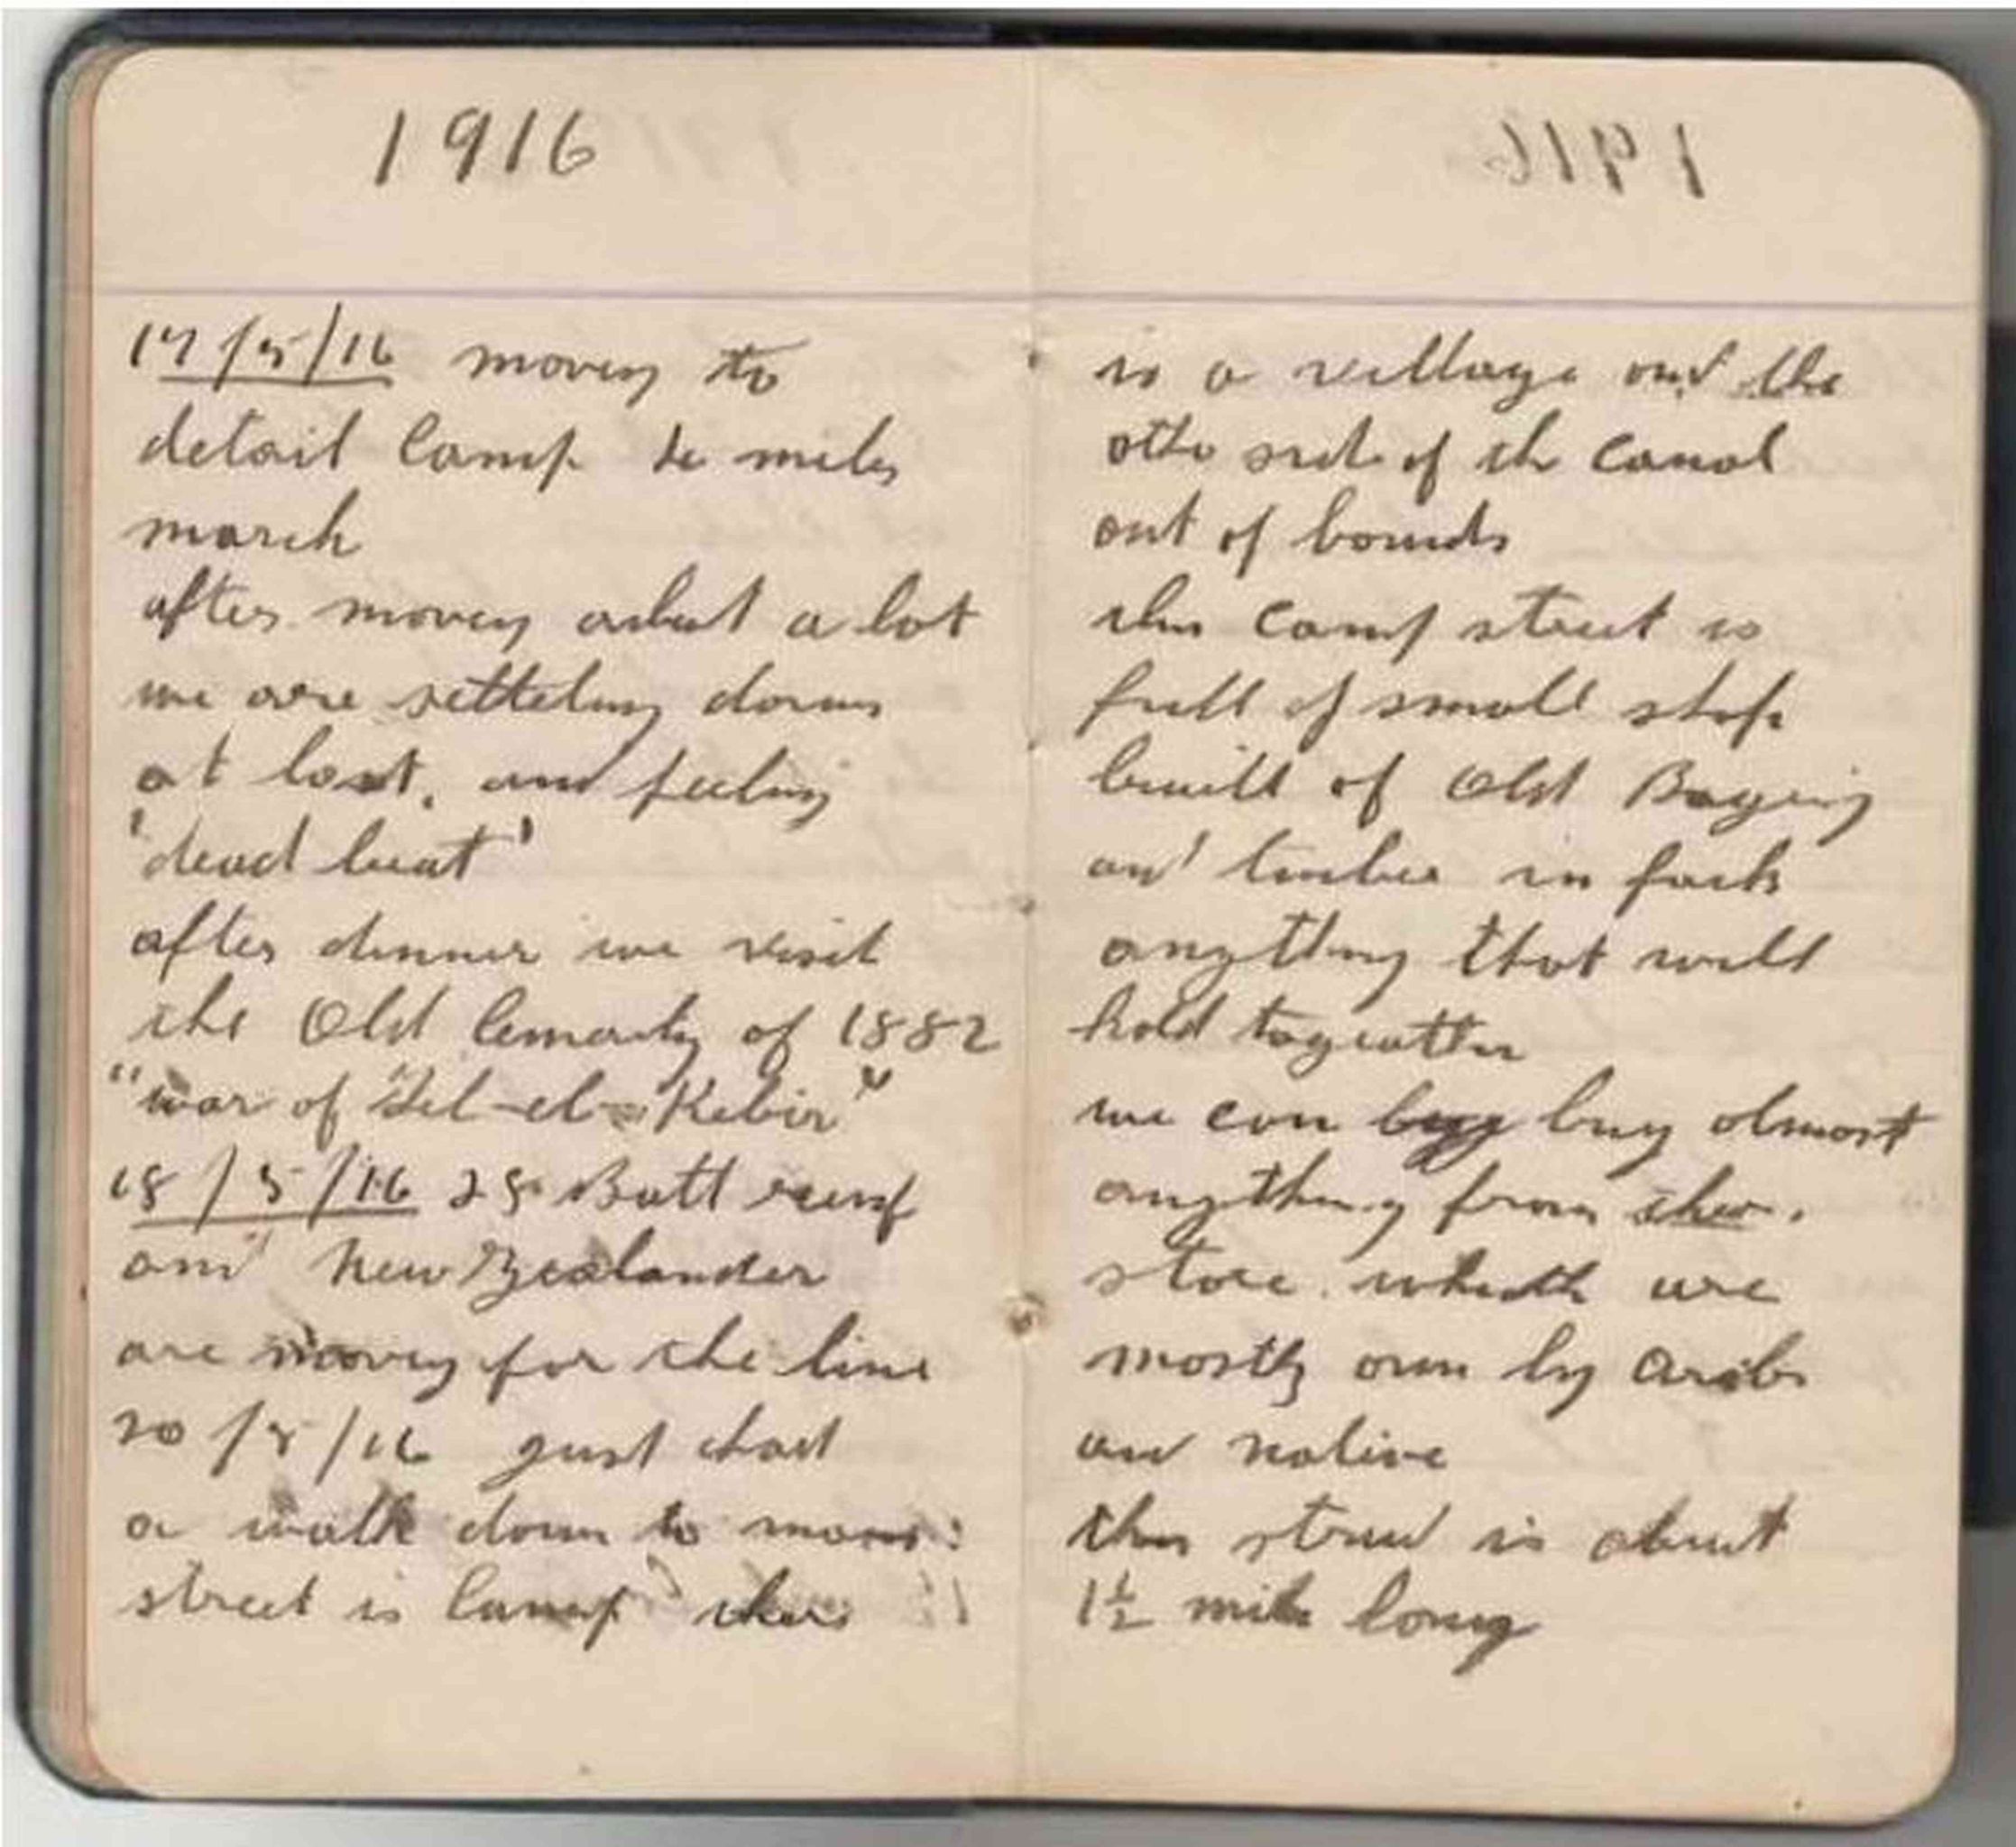 1916
17/5/16 moving to
detail Camp miles
march
after moving about a lot
we are setteling down
at last, and feeling
'dead beat'
after dinner we visit
the Old Cemearty of 1882
"war of "Tel-el-Kebir"
18/5/16 25 Batt reinf
and New Zealander
are moving for the line
20/5/16 just had
a walk down to main
street is Camp ther
is a village and the
othe side of the Canal
out of bounds
this Camp street is
full of small shops
built of Old Baging
and timber in fack
anything that will
hold togeather
we can buy almost
anything from
store which are
mostly own by Arabs
and native
this street is about
1½ mile long